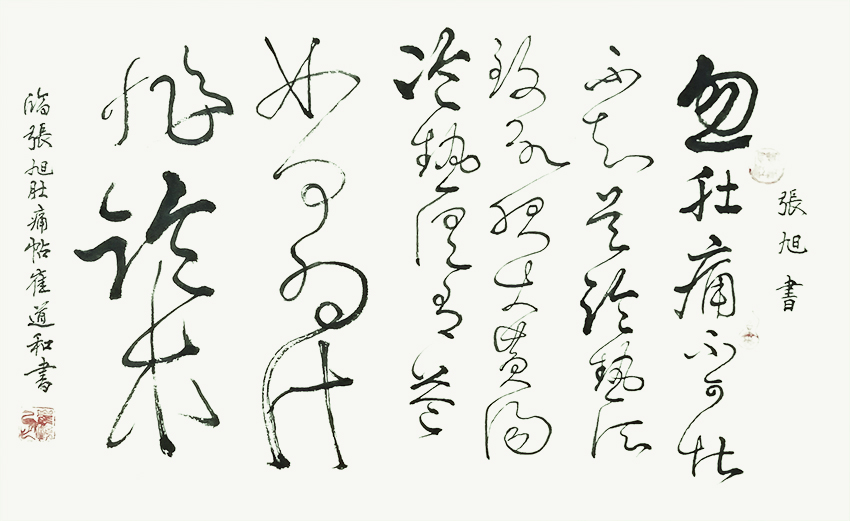 張旭書
忽肚痛不可堪
不知是冷熱所
致欲服大黃湯
冷熱俱有益
如何為計
非臨床
臨張旭肚痛帖崔道和書